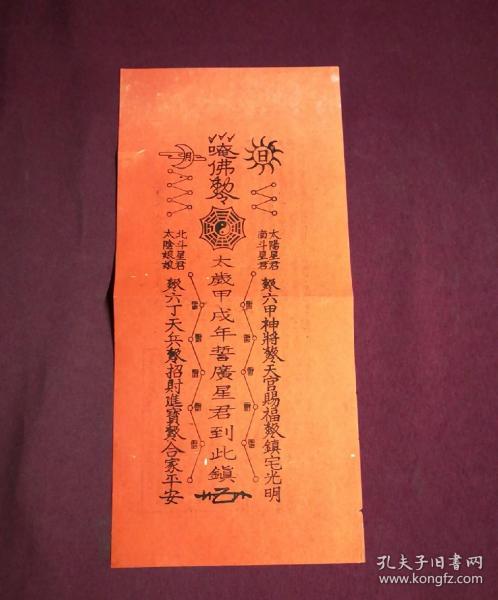 日
月
唵佛勅令
太陽星君
南斗星君
北斗星君
太陰娘娘
勅六甲神將勅天官賜福勅鎮宅光明
太歲甲戌年誓廣星君到此鎮
勅六丁天兵勅招財進寶勅合家平安
孔夫子旧书网
www.kongfz.com